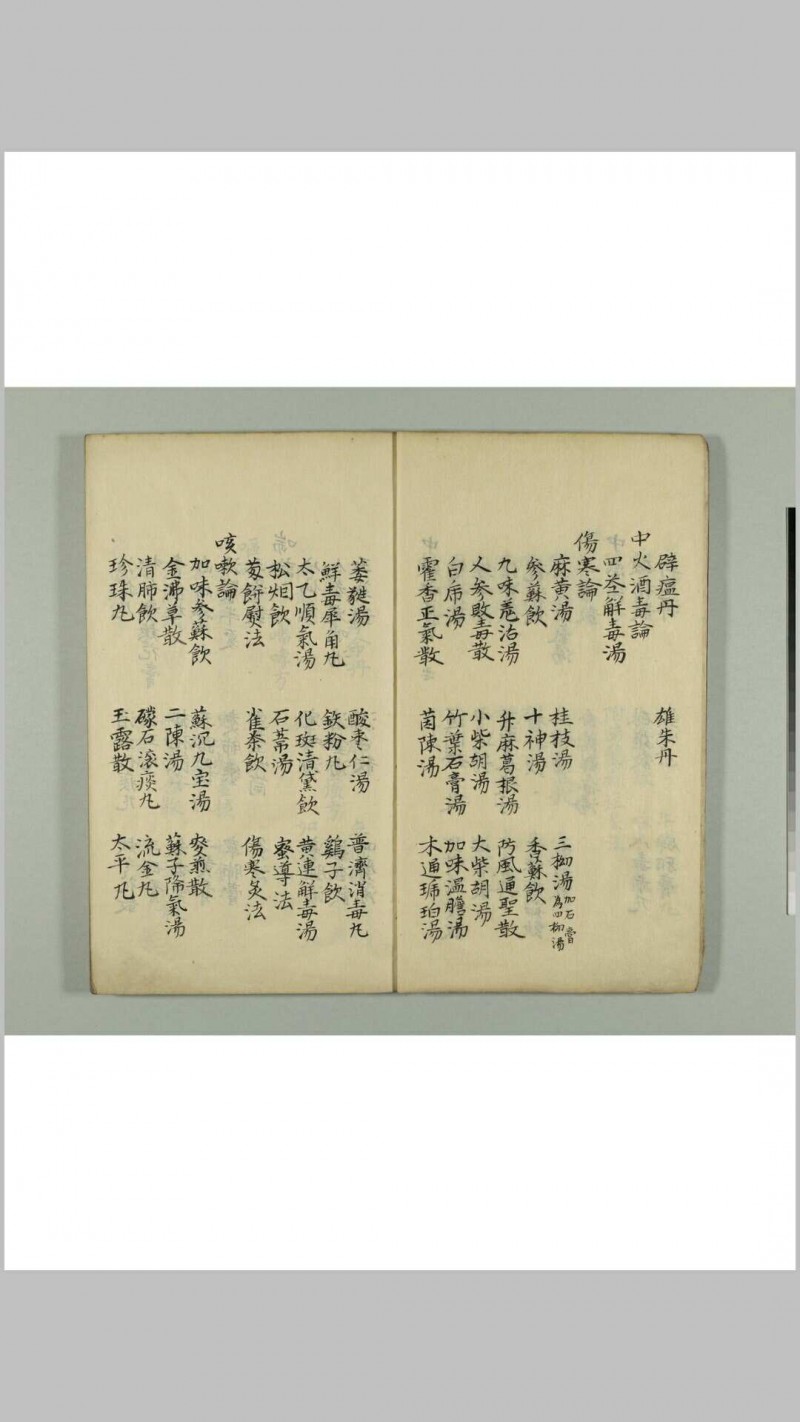 辟瘟丹　雄朱丹
中火酒毒論
四苓解毒湯
傷寒論
麻黄湯　桂枝湯　三拗湯 加石膏為四拗湯
參蘇飲　十神湯　香蘇飲
九味羌活湯　升麻葛根湯　防風通聖散
人參敗毒散　小柴胡湯　大柴胡湯
白虎湯　竹葉石膏湯　加味温膽湯
霍香正氣散　茵陳湯　木通琥珀湯
葳蕤湯　酸枣仁湯　普濟消毒丸
觧毒犀角丸　鉄粉丸　鷄子飲
太乙順氣湯　化斑清黛飲　黄連觧毒湯
松烟飲　石蒂湯　蜜導法
葱餅熨法　雀柰飲　傷寒灸法
咳嗽論
加味參蘇飲　蘇沉九宝湯　麥煎散
金沸草散　二陳湯　蘇子降氣湯
清肺飲　礞石滚痰丸　流金丸
珍珠丸　玉露散　太平丸